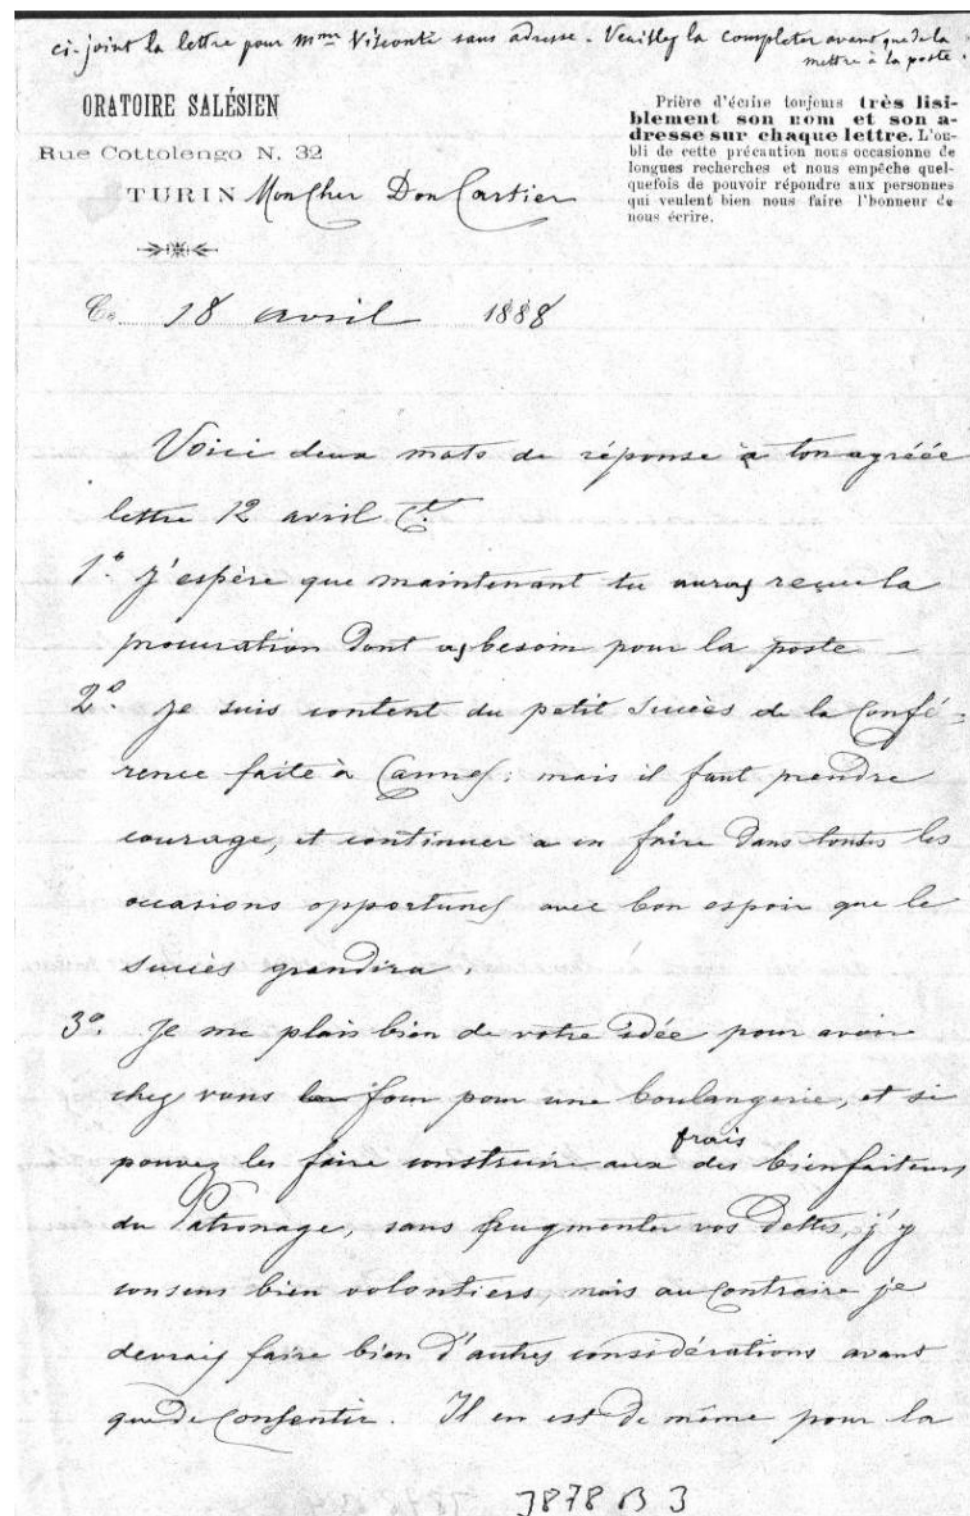 ci-joint la lettre pour Mme Visconti sans adresse. Veuillez la completer avant que de la
mettre à la poste.
ORATOIRE SALÉSIEN
Rue Cottolengo N. 32
TURIN Mon Cher Don Cartier
Prière d'écrire toujours très lisi-
blement son nom et son a-
dresse sur chaque lettre. L'ou-
bli de cette précaution nous occasionne de
longues recherches et nous empêche quel-
quefois de pouvoir répondre aux personnes
qui veulent bien nous faire l'honneur de
nous écrire.
Ce 18 avril 1888
Voici deux mots de réponse à ton agréée
lettre 12 avril Ct.
1.° J'espère que maintenant tu auras reçue la
procuration dont as besoin pour la poste —
2.° Je suis content du petit succès de la Confé-
rence faite à Cannes: mais il faut prendre
courage, et continuer a en faire dans toutes les
occasions opportunes avec bon espoir que le
succès grandira.
3.° Je me plais bien de votre idée pour avoir
chez vous four pour une boulangerie, et si
pouvez les faire construire aux frais des bienfaiteurs
du Patronage, sans augmenter vos dettes, j'y
consens bien volontiers, mais au contraire je
devrais faire bien d'autres considérations avant
que de consentir. Il en est de même pour la
3878 B 3